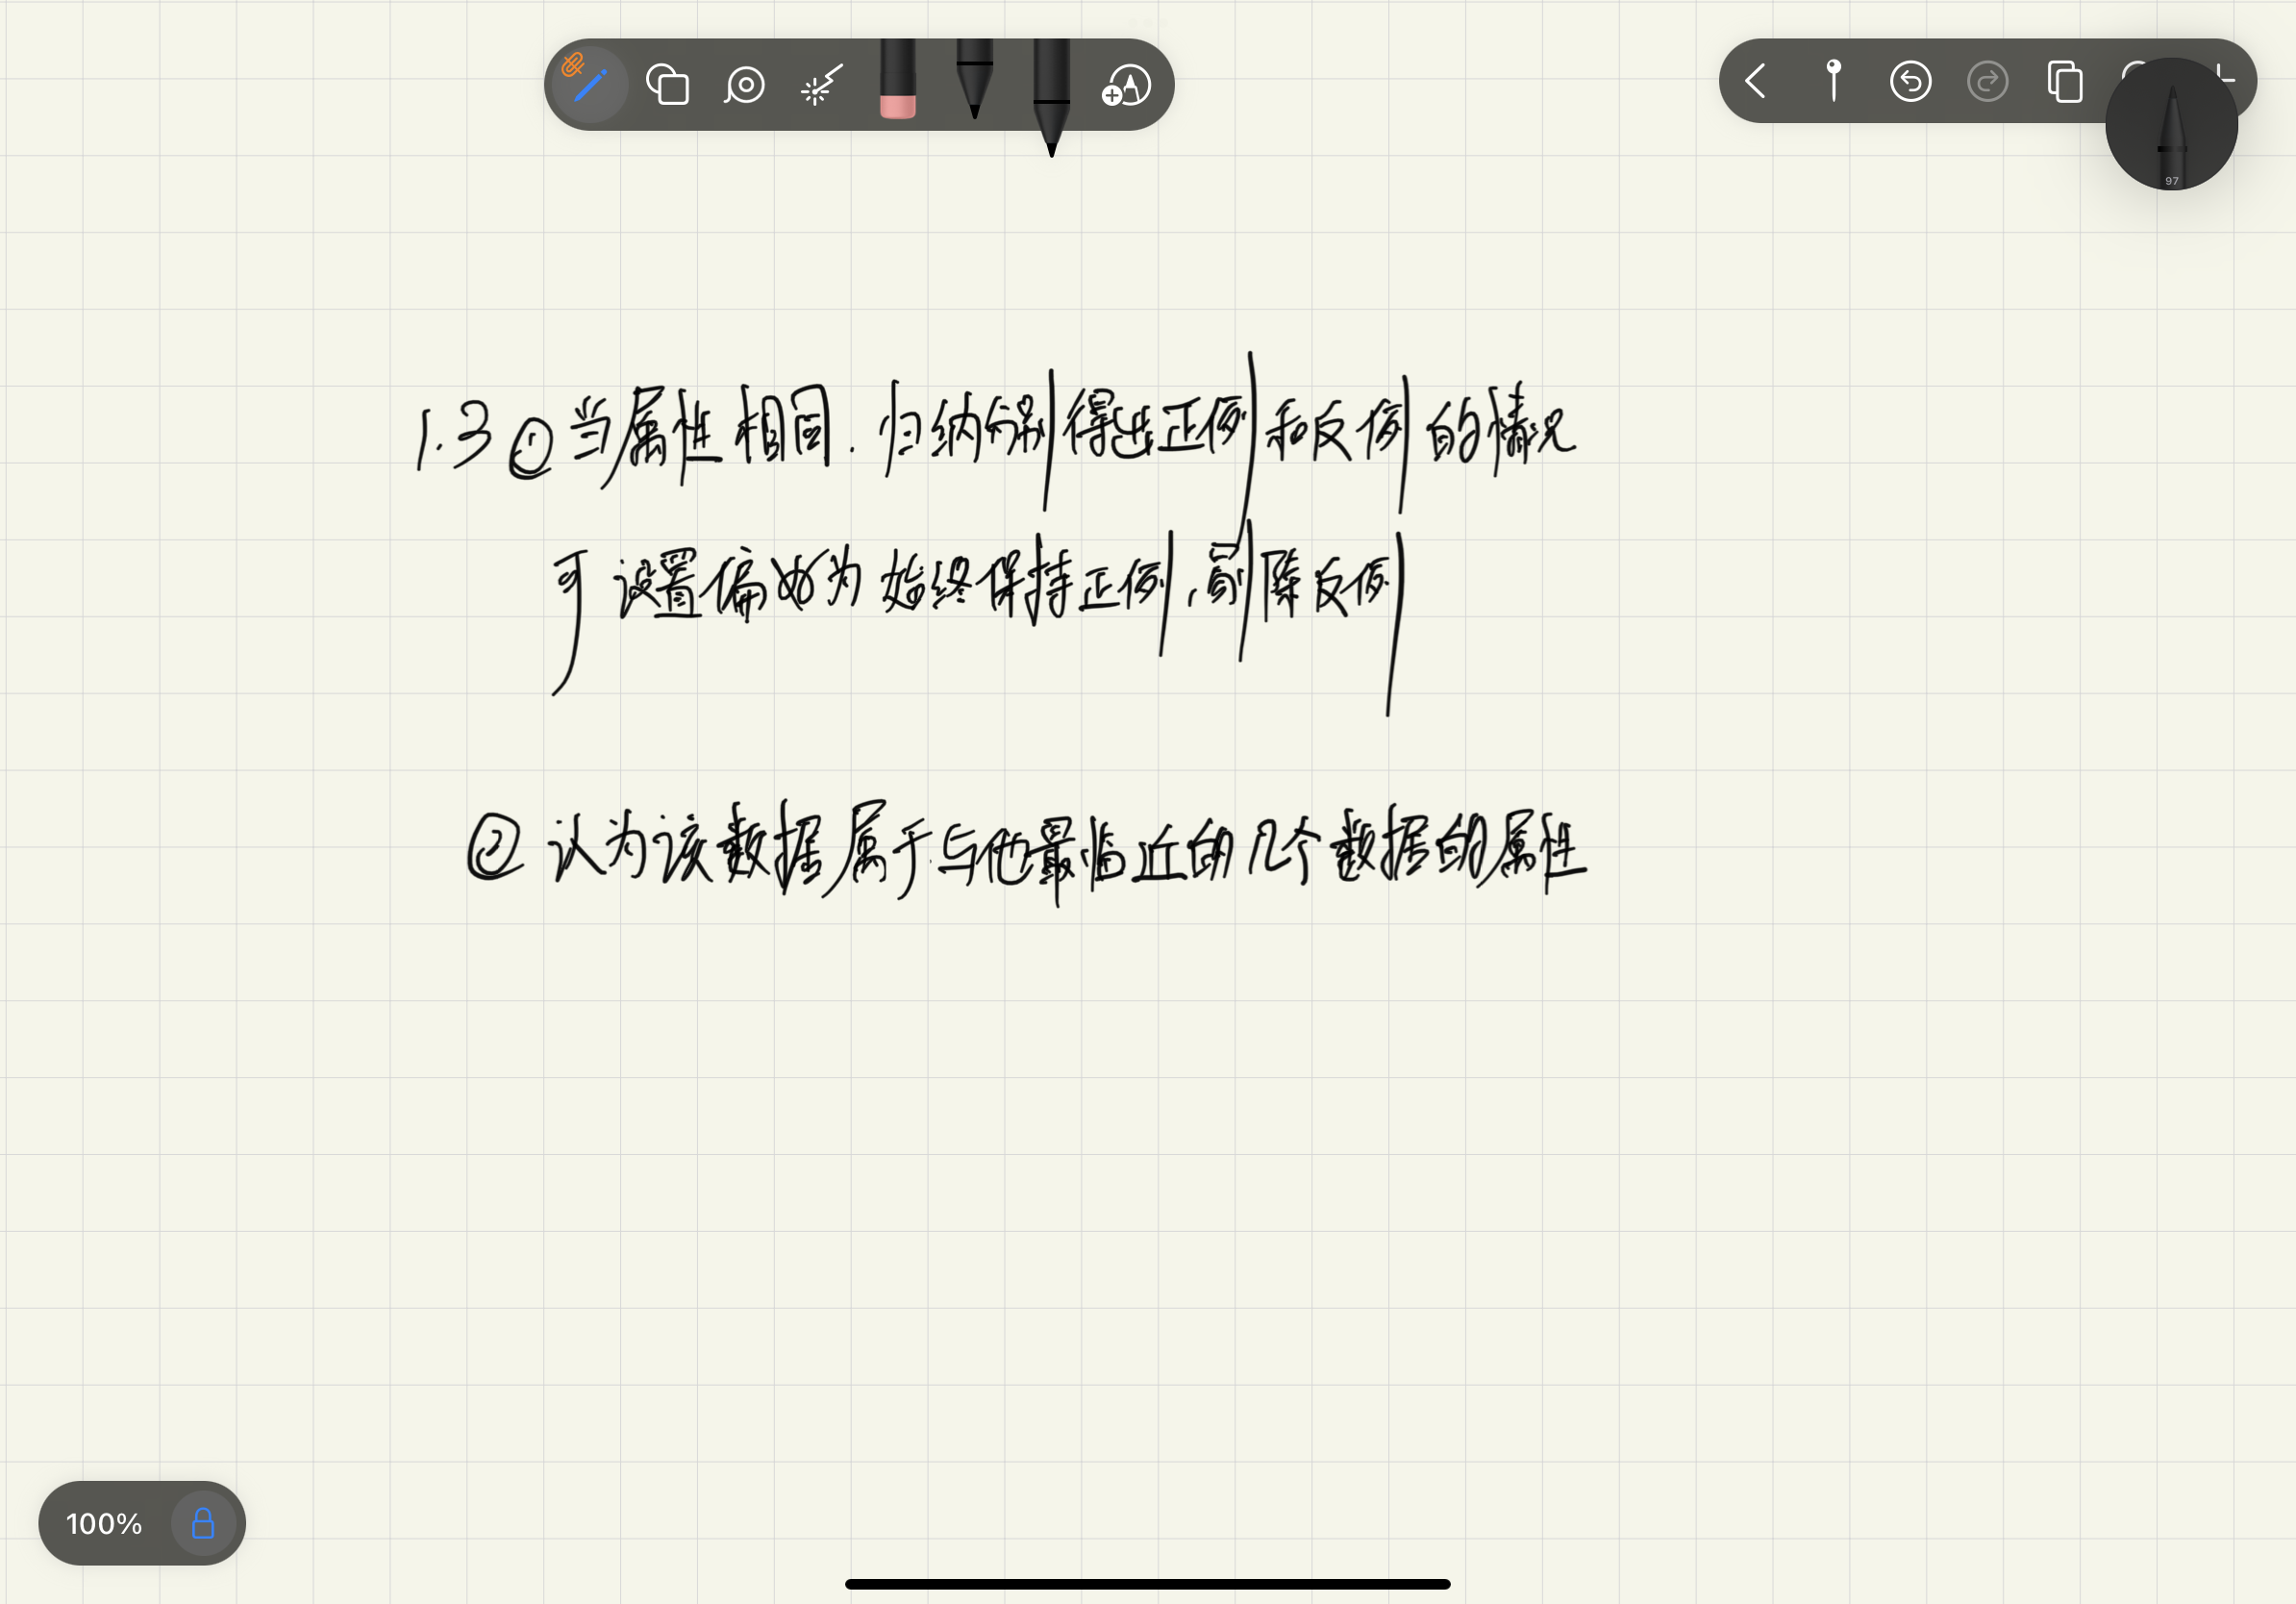 97
1.3 ① 当属性相同.归纳分别得出正例和反例的情况
可设置偏好为始终保持正例,删除反例
② 认为该数据属于与他最临近的几个数据的属性
100%